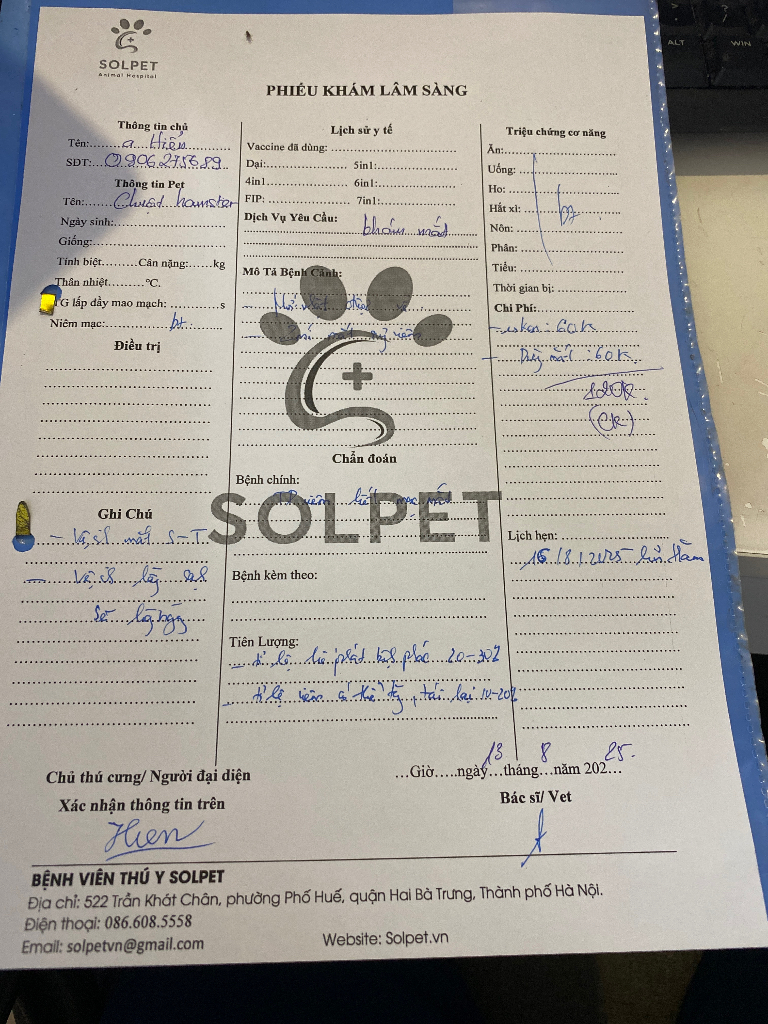 SOLPET
Animal Hospital
ALT
WIN
PHIẾU KHÁM LÂM SÀNG
Thông tin chủ
Tên: a Hiển
SĐT: 0906275689
Thông tin Pet
Tên: Chuột hamster
Ngày sinh:
Giống:
Tính biệt........Cân nặng:......kg
Thân nhiệt........°C.
TG lấp đầy mao mạch: ............s
Niêm mạc: bt
Điều trị
Ghi Chú
- Vệ sh mắt S-T
- Vệ sh lồng
Lịch sử y tế
Vaccine đã dùng:
Dại: 5in1:
4in1 6in1:
FIP: 7in1:
Dịch Vụ Yêu Cầu: khám mắt
Mô Tả Bệnh Cảnh:
SOLPET
Chẩn đoán
Bệnh chính:
viêm kết mạc mắt
Bệnh kèm theo:
Tiên Lượng:
tỉ lệ 20-30%
tỉ lệ tái lại 10-20%
Triệu chứng cơ năng
Ăn:
Uống:
Ho:
Hắt xì: bt
Nôn:
Phân:
Tiểu:
Thời gian bị:
Chi Phí:
: 60K
mắt : 60K
120K
(CK)
Lịch hẹn:
16/8/2025
Chủ thú cưng/ Người đại diện
Xác nhận thông tin trên
Hien
...Giờ.....ngày 13 tháng 8 năm 202 25.
Bác sĩ/ Vet
BỆNH VIỆN THÚ Y SOLPET
Địa chỉ: 522 Trần Khát Chân, phường Phố Huế, quận Hai Bà Trưng, Thành phố Hà Nội.
Điện thoại: 086.608.5558
Email: solpetvn@gmail.com
Website: Solpet.vn